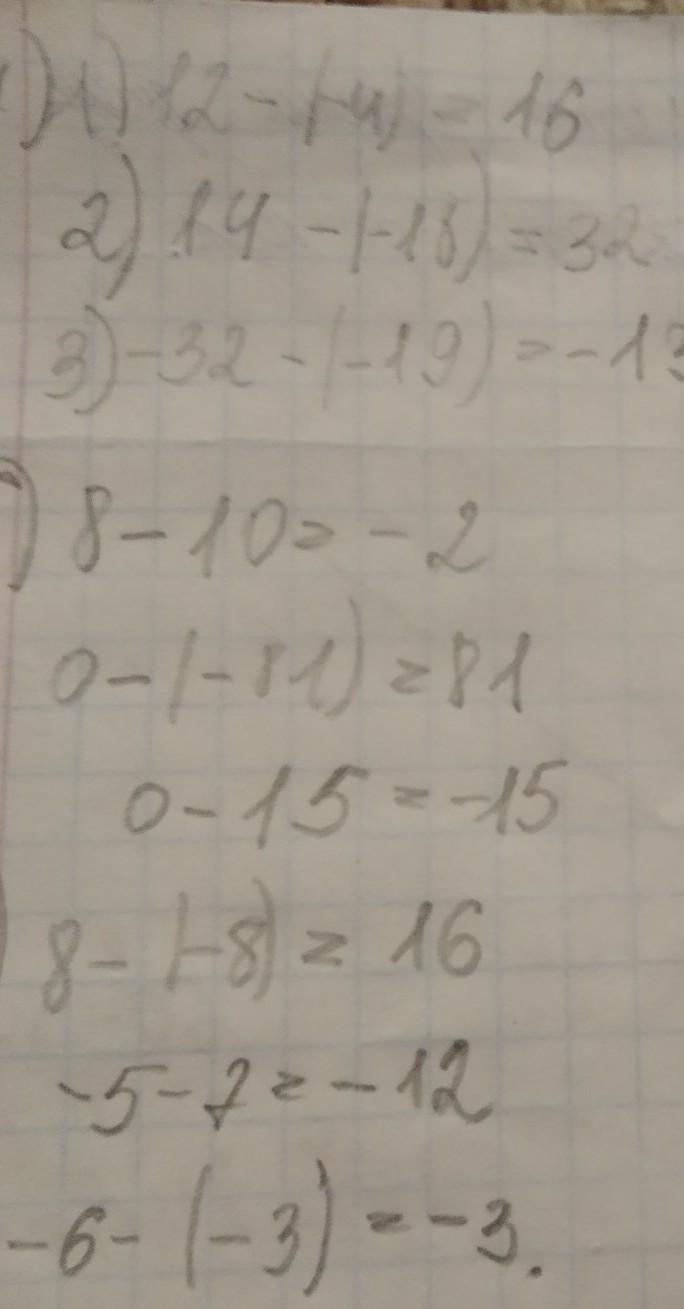 1) 1) 12 - (-4) = 16
2) 14 - (-18) = 32
3) -32 - (-19) = -13
) 8 - 10 = -2
0 - (-81) = 81
0 - 15 = -15
) 8 - (-8) = 16
-5 - 7 = -12
-6 - (-3) = -3.